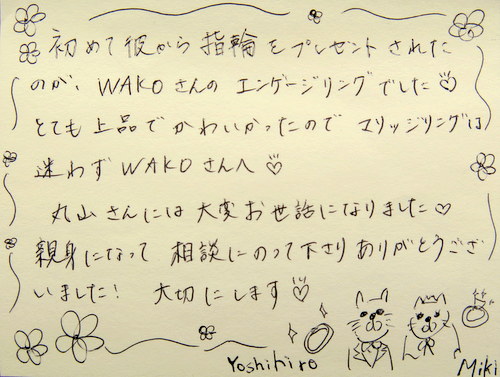 初めて彼から指輪をプレゼントされた
のが、WAKOさんのエンゲージリングでした♡
とても上品でかわいかったのでマリッジリングは
迷わずWAKOさんへ♡
丸山さんには大変お世話になりました♡
親身になって相談にのって下さりありがとうござ
いました！ 大切にします♡
Yoshihiro Miki